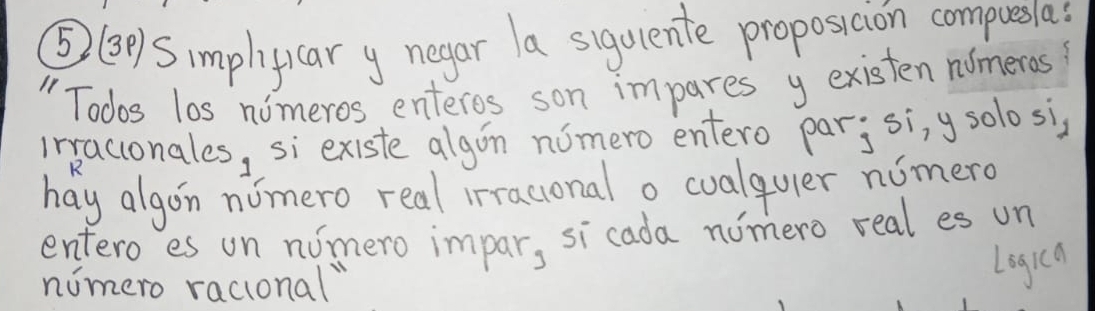 ⑤ (3P) Simplificar y negar la siguiente proposición compuesta:
"Todos los números enteros son impares y existen números
irracionales, si existe algún número entero par; si, y solo si,
R
hay algún número real irracional o cualquier número
entero es un número impar, si cada número real es un
número racional"
Lógica